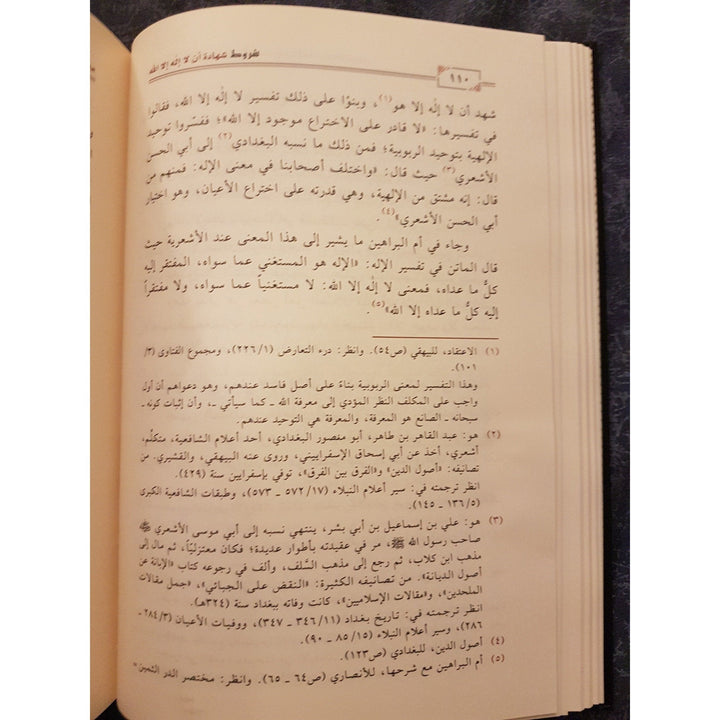 شروط شهادة أن لا إله إلا الله
١١٠
شهد أن لا إله إلا هو(١)، وبنوا على ذلك تفسير لا إله إلا الله، فقالوا
في تفسيرها: «لا قادر على الاختراع موجود إلا الله»؛ ففسّروا توحيد
الإلهية بتوحيد الربوبية؛ فمن ذلك ما نسبه البغدادي(٢) إلى أبي الحسن
الأشعري(٣) حيث قال: «واختلف أصحابنا في معنى الإله: فمنهم من
قال: إنه مشتق من الإلهية، وهي قدرته على اختراع الأعيان، وهو اختيار
أبي الحسن الأشعري»(٤).
وجاء في أم البراهين ما يشير إلى هذا المعنى عند الأشعرية حيث
قال الماتن في تفسير الإله: «الإله هو المستغني عما سواه، المفتقر إليه
كلُّ ما عداه، فمعنى لا إله إلا الله: لا مستغنياً عما سواه، ولا مفتقراً
إليه كلُّ ما عداه إلا الله»(٥).
(١) الاعتقاد، للبيهقي (ص٥٤). وانظر: درء التعارض (٢٢٦/١)، ومجموع الفتاوى (٣/
١٠١).
وهذا التفسير لمعنى الربوبية بناءً على أصل فاسد عندهم، وهو دعواهم أن أول
واجب على المكلف النظر المؤدي إلى معرفة الله ـ كما سيأتي ـ، وأن إثبات كونه ـ
سبحانه ـ الصانع هو المعرفة، والمعرفة هي التوحيد عندهم.
(٢) هو: عبد القاهر بن طاهر، أبو منصور البغدادي، أحد أعلام الشافعية، متكلّم،
أشعري، أخذ عن أبي إسحاق الإسفراييني، وروى عنه البيهقي، والقشيري. من
تصانيفه: «أصول الدين» و«الفرق بين الفرق»، توفي بإسفرايين سنة (٤٢٩).
انظر ترجمته في: سير أعلام النبلاء (١٧/ ٥٧٢ ـ ٥٧٣)، وطبقات الشافعية الكبرى
(٥/ ١٣٦ ـ ١٤٥).
(٣) هو: علي بن إسماعيل بن أبي بشر، ينتهي نسبه إلى أبي موسى الأشعري ﷺ
صاحب رسول الله ﷺ، مر في عقيدته بأطوار عديدة؛ فكان معتزليّاً، ثم مال إلى
مذهب ابن كلاب، ثم رجع إلى مذهب السَّلف، وألف في رجوعه كتاب «الإبانة عن
أصول الديانة». من تصانيفه الكثيرة: «النقض على الجبائي»، «جمل مقالات
الملحدين»، و«مقالات الإسلاميين»، كانت وفاته ببغداد سنة (٣٢٤هـ).
انظر ترجمته في: تاريخ بغداد (١١/ ٣٤٦ ـ ٣٤٧)، ووفيات الأعيان (٣/ ٢٨٤ ـ
٢٨٦)، وسير أعلام النبلاء (١٥/ ٨٥ ـ ٩٠).
(٤) أصول الدين، للبغدادي (ص١٢٣).
(٥) أم البراهين مع شرحها، للأنصاري (ص٦٤ ـ ٦٥). وانظر: مختصر الدر الثمين =